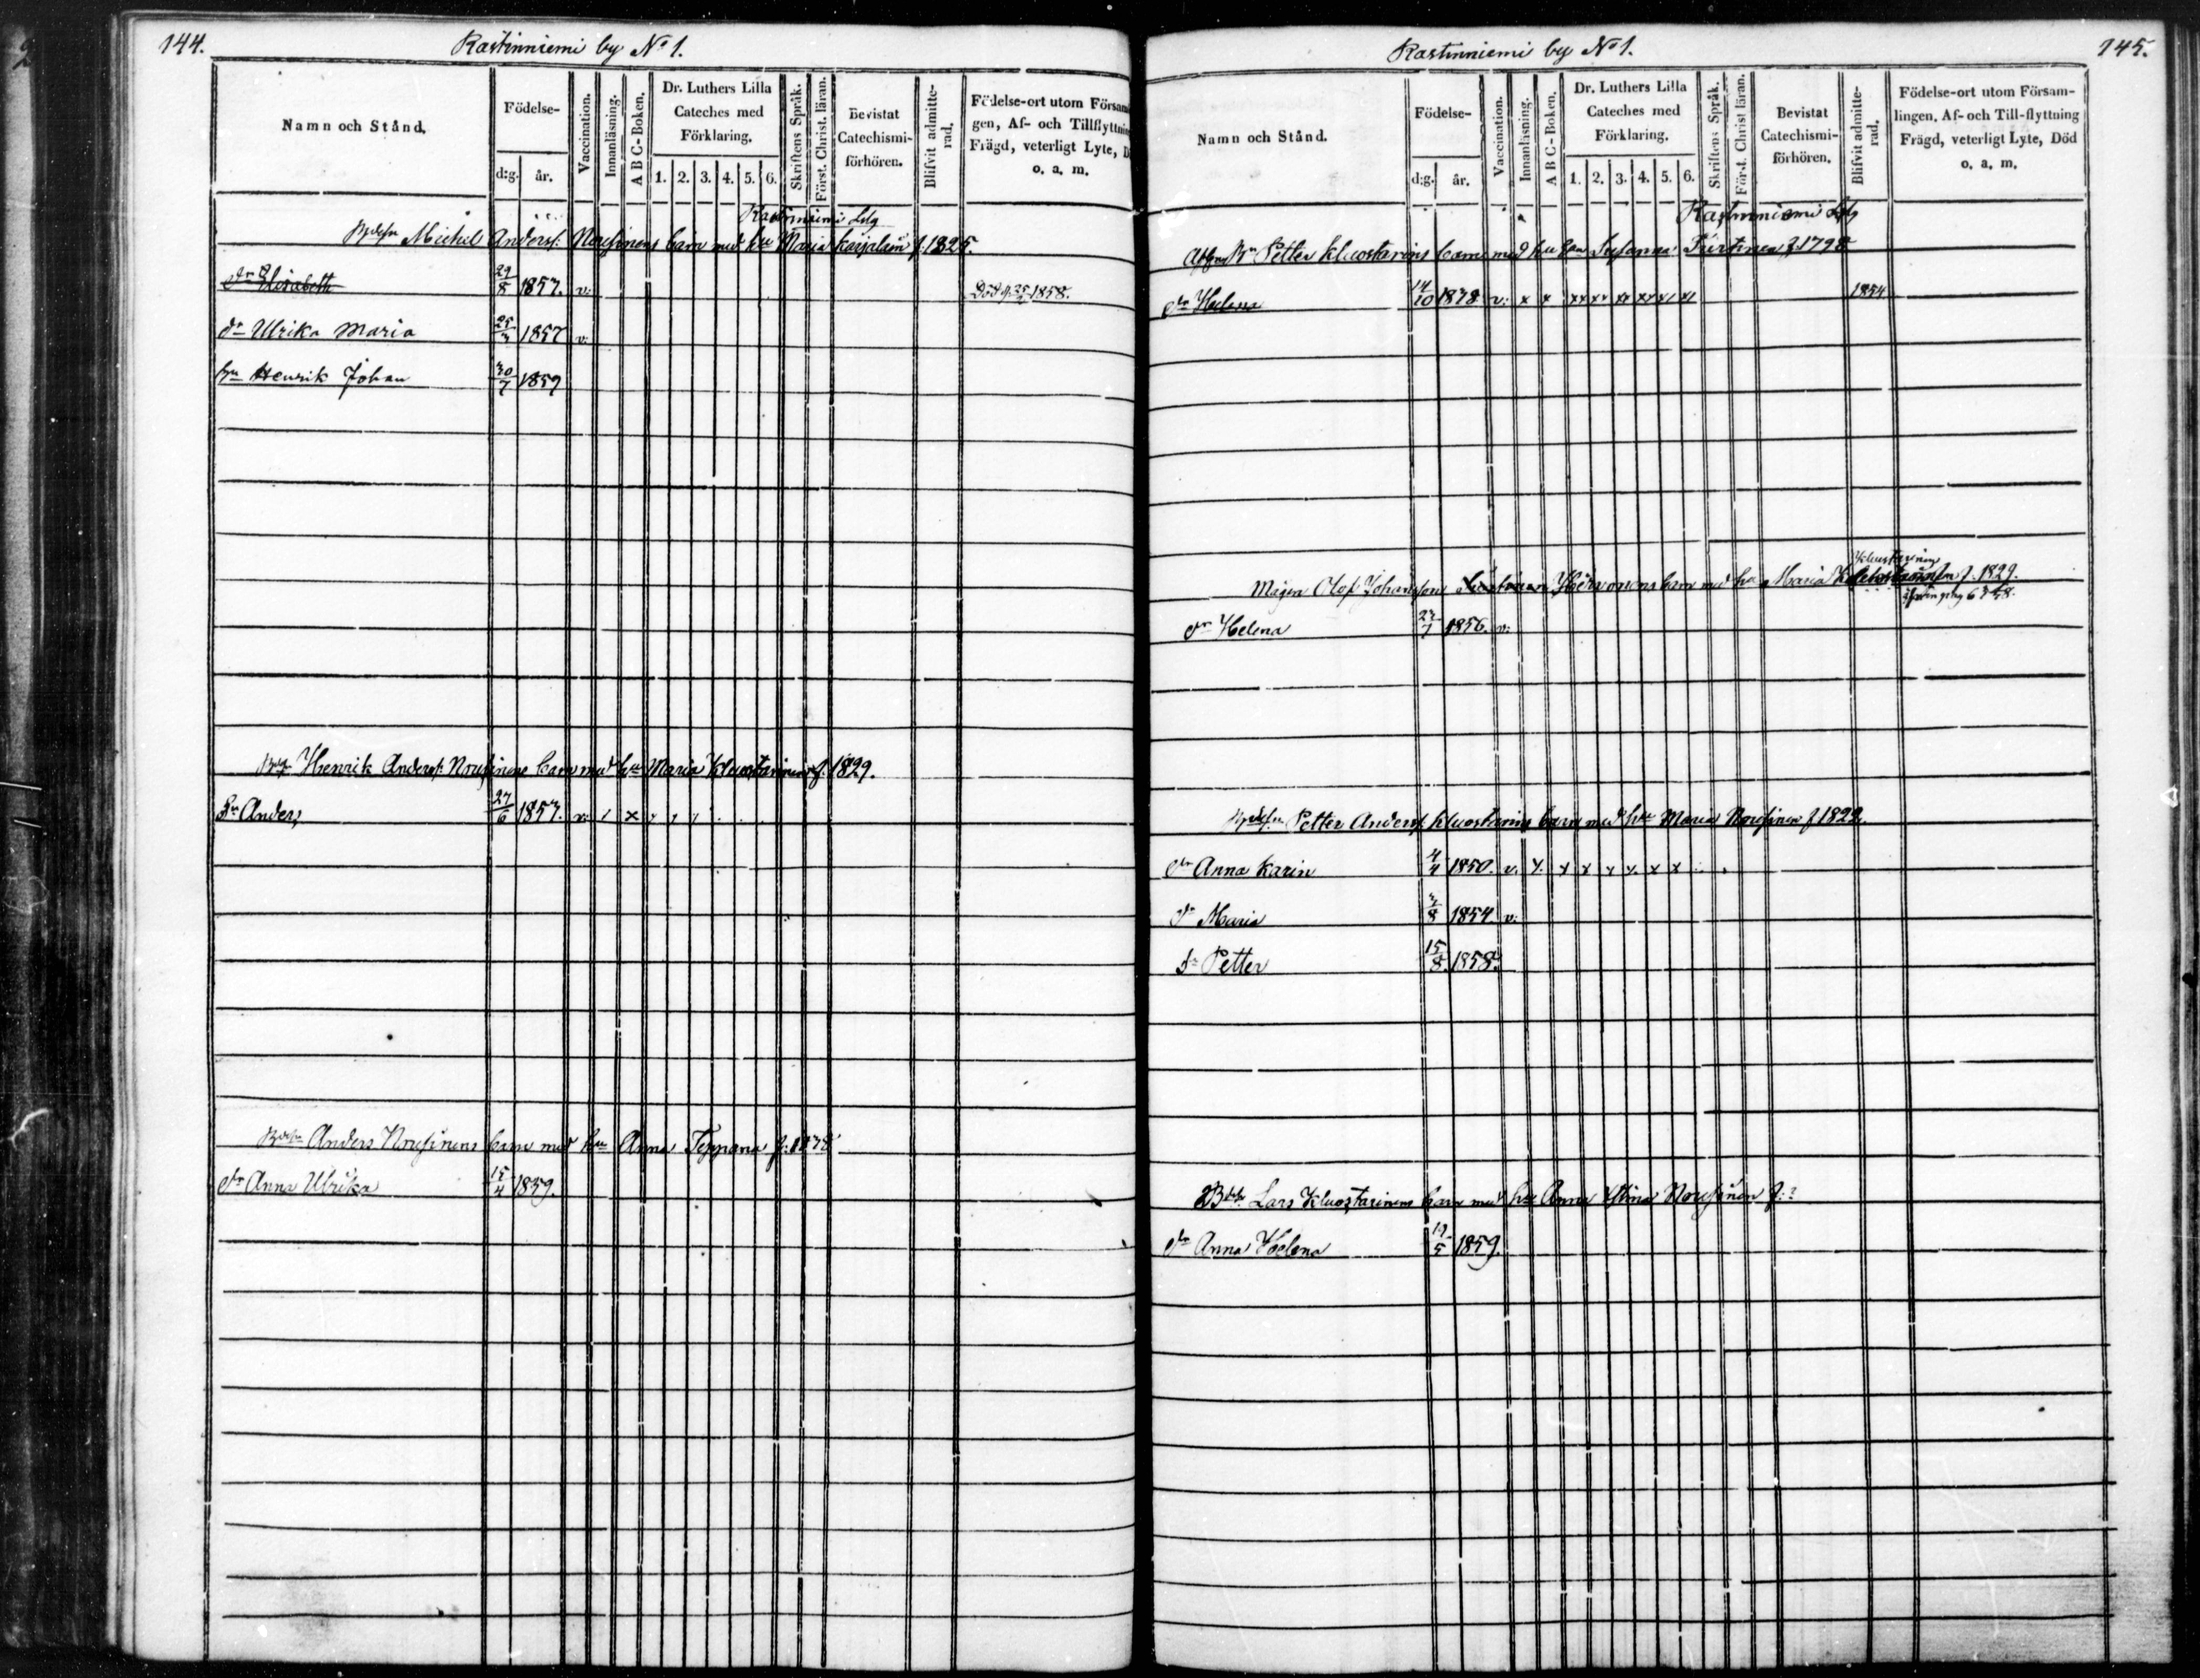 144.
Rastinniemi by No 1.
Namn och Stånd.
Födelse-
d:g.
år.
Vaccination.
Innanläsning.
A B C-Boken.
Dr. Luthers Lilla
Cateches med
Förklaring.
1. 2. 3. 4. 5. 6.
Skriftens Språk.
Först. Christ. läran.
Bevistat
Catechismi-
förhören.
Blifvit admitte-
rad.
Födelse-ort utom Försam
gen, Af- och Tillflyttning
Frägd, veterligt Lyte, D
o. a. m.
Rastinniemi
Michel Anders: Nousinens barn med hu Maria Karjalain f. 1825.
dr Elisabeth 29/8 1857. v: Död 25/2 1858.
dr Ulrika Maria 25/3 1857 v:
sn Henrik Johan 30/7 1859
Henrik Anders: Nousinens barn med hu Maria Kluostarinen f. 1829.
Sn Anders 27/6 1853. v: / x
Anders Nousinens barn med hu Anna Teppana f: 1838
dr Anna Ulrika 15/4 1859.
Rastinniemi by No 1.
145.
Namn och Stånd.
Födelse-
d:g.
år.
Vaccination.
Innanläsning.
A B C-Boken.
Dr. Luthers Lilla
Cateches med
Förklaring.
1. 2. 3. 4. 5. 6.
Skriftens Språk.
Först. Christ läran.
Bevistat
Catechismi-
förhören.
Blifvit admitte-
rad.
Födelse-ort utom Försam-
lingen, Af- och Till-flyttning
Frägd, veterligt Lyte, Död
o. a. m.
Rastinniemi
Petter Kluostarins barn med hu Susanna f. 1798
dr Helena 14/10 1838 v: x x xx xx xx xx x1 x1 1854
Kluostarinen
Mågen Olof Johansson barn med hu Maria f. 1829.
dr Helena 23/7 1856. v:
Petter Anders: Kluostarins barn med hu Maria Nousinen f 1822.
dr Anna Karin 4/4 1850. v. x x x x x x x
dr Maria 3/8 1854 v:
Sn Petter 15/8. 1858.
Lars Kluostarinens barn med hu Anna Stina Nousinen f: ?
dr Anna Helena 19/5 1859.